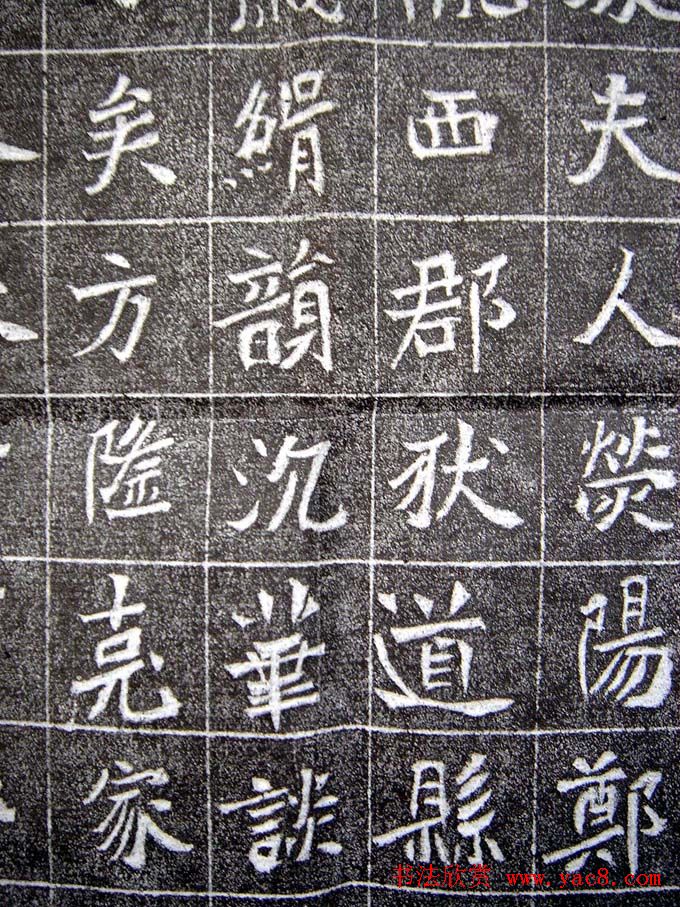 夫人熒陽鄭
西郡狄道縣
韻沉華談
矣方隆亮家
书法欣赏 www.yac8.com